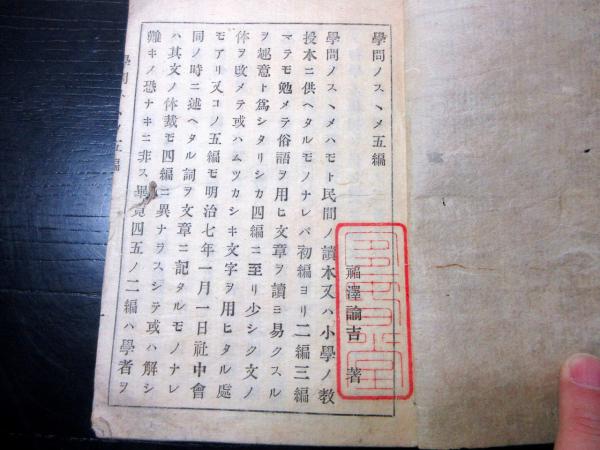 學問ノスヽメ五編
福澤諭吉 著
學問ノスヽメハモト民間ノ讀本又ハ小學ノ教
授本ニ供ヘタルモノナレバ初編ヨリ二編三編
マテモ勉メテ俗語ヲ用ヒ文章ヲ讀ミ易クスル
ヲ趣意ト爲シタリシカ四編ニ至リ少シク文ノ
体ヲ改メテ或ハムツカシキ文字ヲ用ヒタル處
モアリ又コノ五編モ明治七年一月一日社中會
同ノ時ニ述ヘタル詞ヲ文章ニ記タルモノナレ
ハ其文ノ体裁モ四編ニ異ナラスシテ或ハ解シ
難キノ恐ナキニ非ス畢竟四五ノ二編ハ學者ヲ
五編